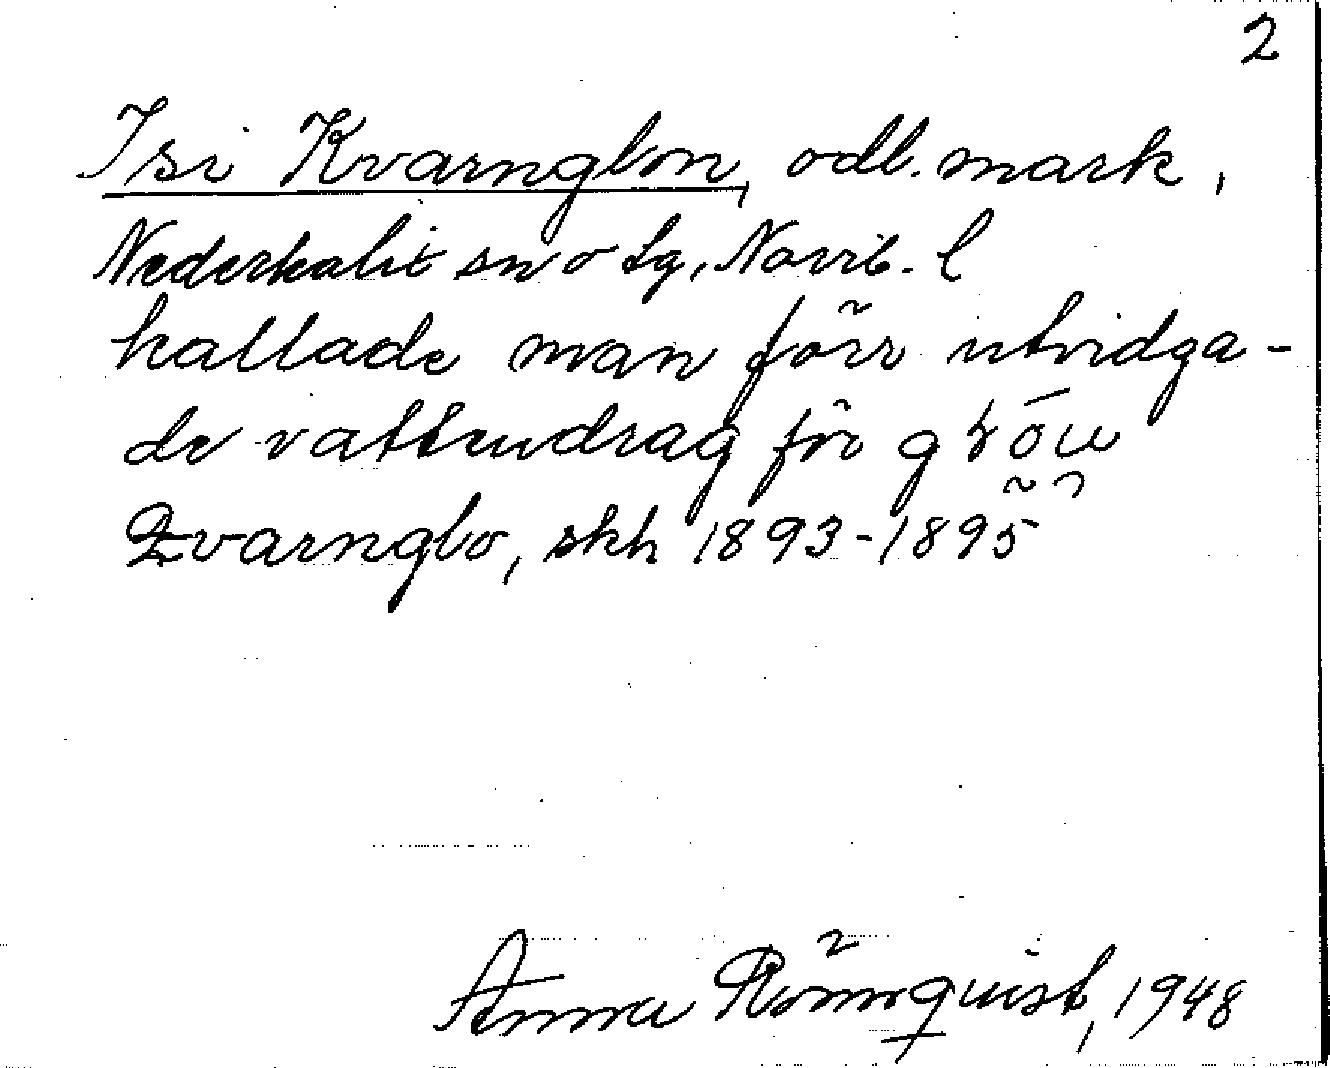 2
Isi Kvarnglon, odl. mark,
Nederkalix sn o tg, Norrb. l
kallade man förr utvidga-
de vattendrag för
Qvarnglo, skh 1893-1895
Anna Rönnquist, 1948